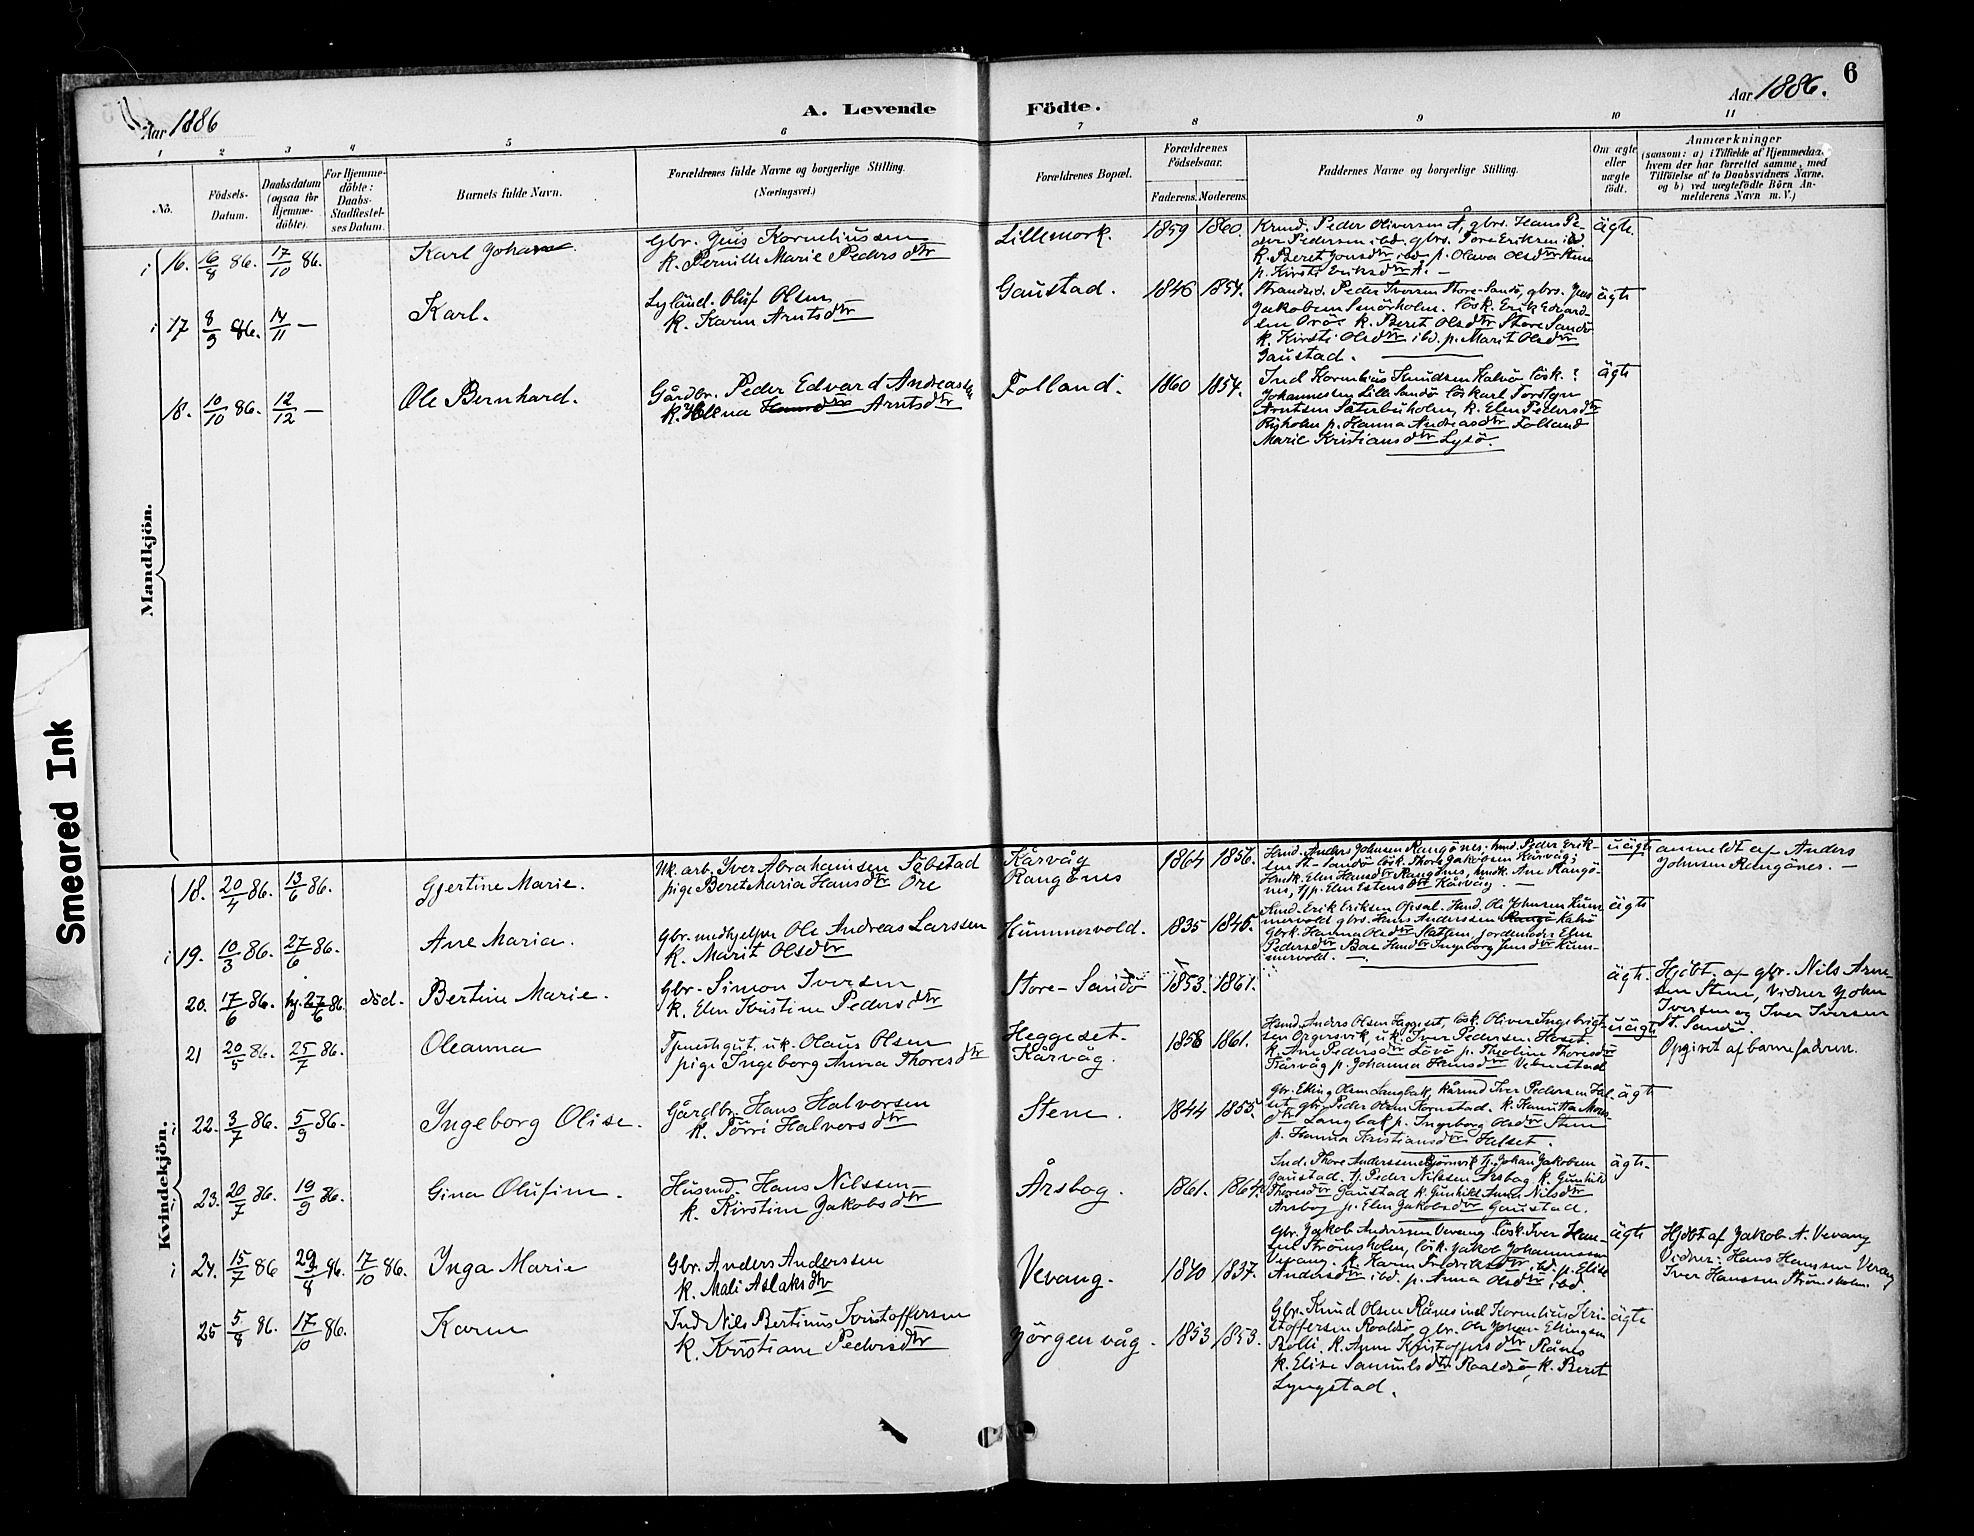 Aar 1886
A. Levende Födte.
Aar 1886.
6
1 2 3 4 5 6 7 8 9 10 11
No.
Födsels-Datum.
Daabsdatum (ogsaa for Hjemme-döbte).
For Hjemme-döbte: Daabs-Stadfæstel-ses Datum.
Barnets fulde Navn.
Forældrenes fulde Navne og borgerlige Stilling. (Næringsvei.)
Forældrenes Bopæl.
Forældrenes Födselsaar.
Faderens. Moderens.
Faddernes Navne og borgerlige Stilling.
Om ægte eller uægte födt.
Anmærkninger
(saasom: a) i Tilfælde af Hjemmedaab, hvem der har forrettet samme, med Tilföielse af to Daabsvidners Navne, og b) ved uægtefödte Börn An-melderens Navn m. V.)
Mandkjön.
16. 16/8 86. 17/10 86. Karl Johan
Gbr. Jens Korneliussen
k. Pernille Marie Pedersdtr
Lillemork. 1859 1860. ägte.
Krmd. Peder Oliversen Å, gbrs. Hans Pe-
der Pedersen ibd. gbrs. Tore Eriksen ibd
k. Beret Jonsdtr ibd p. Olava Olsdtr Stene
p. Kirsti Eriksdtr Å. -
17 8/9 86. 14/11 - Karl.
Oluf Olsen
k. Karen Arntsdtr
Gaustad. 1846 1854. ägte
Strandsid. Peder Iversen Store-Sandö, gbrs. Jens
Jakobsen Smörholm. lösk. Erik Edvard-
sen Orö k. Beret Olsdtr Store Sandö
k. Kirsti Olsdtr ibd. p. Marit Olsdtr
Gaustad.
18. 10/10 86. 12/12 - Ole Bernhard.
Gårdbr. Peder Edvard Andreassen
k. Elena Arntsdtr
Folland. 1860 1854. ägte
Ind Kornelius Knudsen Kalvö lösk. ?
Johannesen Lille Sandö löskarl Torstein
Arntsen Säterbuholm, k. Elen Pedersdtr
Risholm p. Hanna Andreasdtr Folland
Marie Kristiansdtr Lysö.
Smeared Ink
Kvindekjön.
18. 20/4 86. 13/6 86. Gjertine Marie.
Uk. arb. Iver Abrahamsen Söbstad
pige Beret Maria Hansdtr Öre
Kårvåg
Rangönes
1864 1856. uägte
Husmd. Anders Johnsen Rangönes, husmd. Peder Erik-
sen St-Sandö lösk. Thore Jakobsen Kårvåg;
Husmk. Elen Hansdtr Rangönes, husmk. Ane Rangö-
nes, tj.p. Elen Estensdtr Kårvåg. -
anmeldt af Anders
Johnsen Rangönes. -
19. 10/3 86. 27/6 86. Ane Maria.
Gbr. medhjelper Ole Andreas Larssen
k. Marit Olsdtr
Hummervold. 1835 1846. ägte
Husmd. Erik Eriksen Opsal. Husmd. Ole Johnsen Hum-
mervold gbrs. Hans Anderssen Kalvö
Gbrk. Hanna Olsdtr Slatlem, jordemoder Elen
Pedersdtr Boe Ingeborg Jensdtr Hum-
mervold. -
20. 17/6 86. hj. 27/6 86. död. Bertine Marie.
Gbr. Simon Iversen
k. Elen Kristine Pedersdtr
Store-Sandö 1853. 1861. ägte.
Hjdbt. af gbr. Nils Arne-
sen Stene, Vidner John
Iversen og Iver Iversen
St. Sandö.
21 20/5 86. 25/7 86. Oleanna
Tjenestegut, u.k. Olaus Olsen
pige Ingeborg Anna Thoresdtr
Heggeset.
Kårvåg.
1858 1861. uägte
Husmd. Anders Olsen Heggeset, lösk. Oliver Ingebrigt-
sen Orgersvik, u.k. Iver Pedersen Hoset.
k. Ane Pedersdtr Lövö p. Theoline Thoresdtr
Kårvåg p. Johanna Hansdtr Vebenstad
Opgivet af barnefaderen.
22. 3/7 86. 5/9 86. Ingeborg Olise.
Gårdbr. Hans Halvorsen
k. Pörri Halvorsdtr
Stene. 1844 1855. ägte
Gbr. Elling Olsen Langbak, kårmd Iver Pedersen Hel-
set, gbr. Peder Olsen Kornstad. k. Kanutta Mons-
dtr Langbak p. Ingeborg Olsdtr Stene
p. Hanna Kristiansdtr Helset.
23. 20/7 86. 19/9 86. Gina Olufine.
Husmd Hans Nilssen
k. Kirstine Jakobsdtr
Årsbog. 1861. 1864. ägte.
Ind. Thore Anderssen Bjørnvik tj. Johan Jakobsen
Gaustad. tj. Peder Nilssen Årsbog k. Gunhild
Thoresdtr Gaustad k. Gunhild Anna Nilsdtr
Årsbog p. Elen Jakobsdtr Gaustad.
24. 15/7 86 29/8 86. 17/10 86. Inga Marie
Gbr. Anders Andersen
k. Mali Aslaksdtr
Vevang. 1840 1837. ägte
Gbr. Jakob Andersen Vevang lösk. Iver Han-
sen Strömsholm, lösk. Jakob Johannessen
Vevang. k. Karen Fredriksdtr, ibd. p. Elise
Andersdtr ibd. p. Anna Olsdtr ibd.
Hjdbt af Jakob A. Vevang
Vidner: Hans Hansen Vevang
Iver Hanssen Strömsholm.
25 5/8 86. 17/10 86. Karen
Ind Nils Bertinus Kristoffersen
k. Kristiane Pedersdtr
Jörgenvåg. 1853 1853. ägte
Gbr. Knud Olsen Rånes ind Kornelius Kri-
stoffersen Roaldsö gbr. Ole Johan Ellingsen
Bolli. k. Anne Kristoffersdtr Rånes
k. Elise Samuelsdtr Roaldsö, k. Beret
Lyngstad.